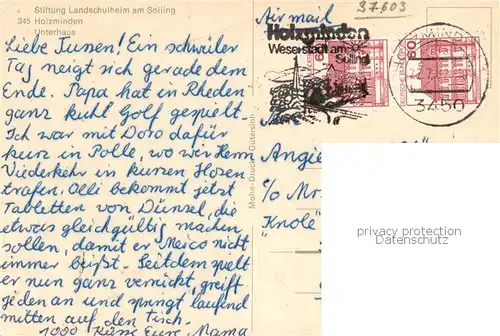 Stiftung Landschulheim am Solling
345 Holzminden
Unterhaus
Liebe Jussen! Ein schwüler
Tag neigt sich gerade dem
Ende. Papa hat in Rheden
ganz kuhl Golf gespielt.
Ich war mit Doro dafür
kurz in Polle, wo wir Herrn
Viederkehr in kurzen Hosen
trafen. Olli bekommt jetzt
Tabletten von Dünsel, die
etwas gleichgültig machen
sollen, damit er Meico nicht
immer beißt. Seitdem spielt
er nun ganz verrückt, greift
jeden an und springt laufend
mitten auf den Tisch.
1000 Küsse Eure Mama
Mohn-Druck Gütersloh
Air mail
37603
Holzminden
Weserstadt am
Solling
3450
60
Angie
c/o Mr.
"Knole"
privacy protection
Datenschutz